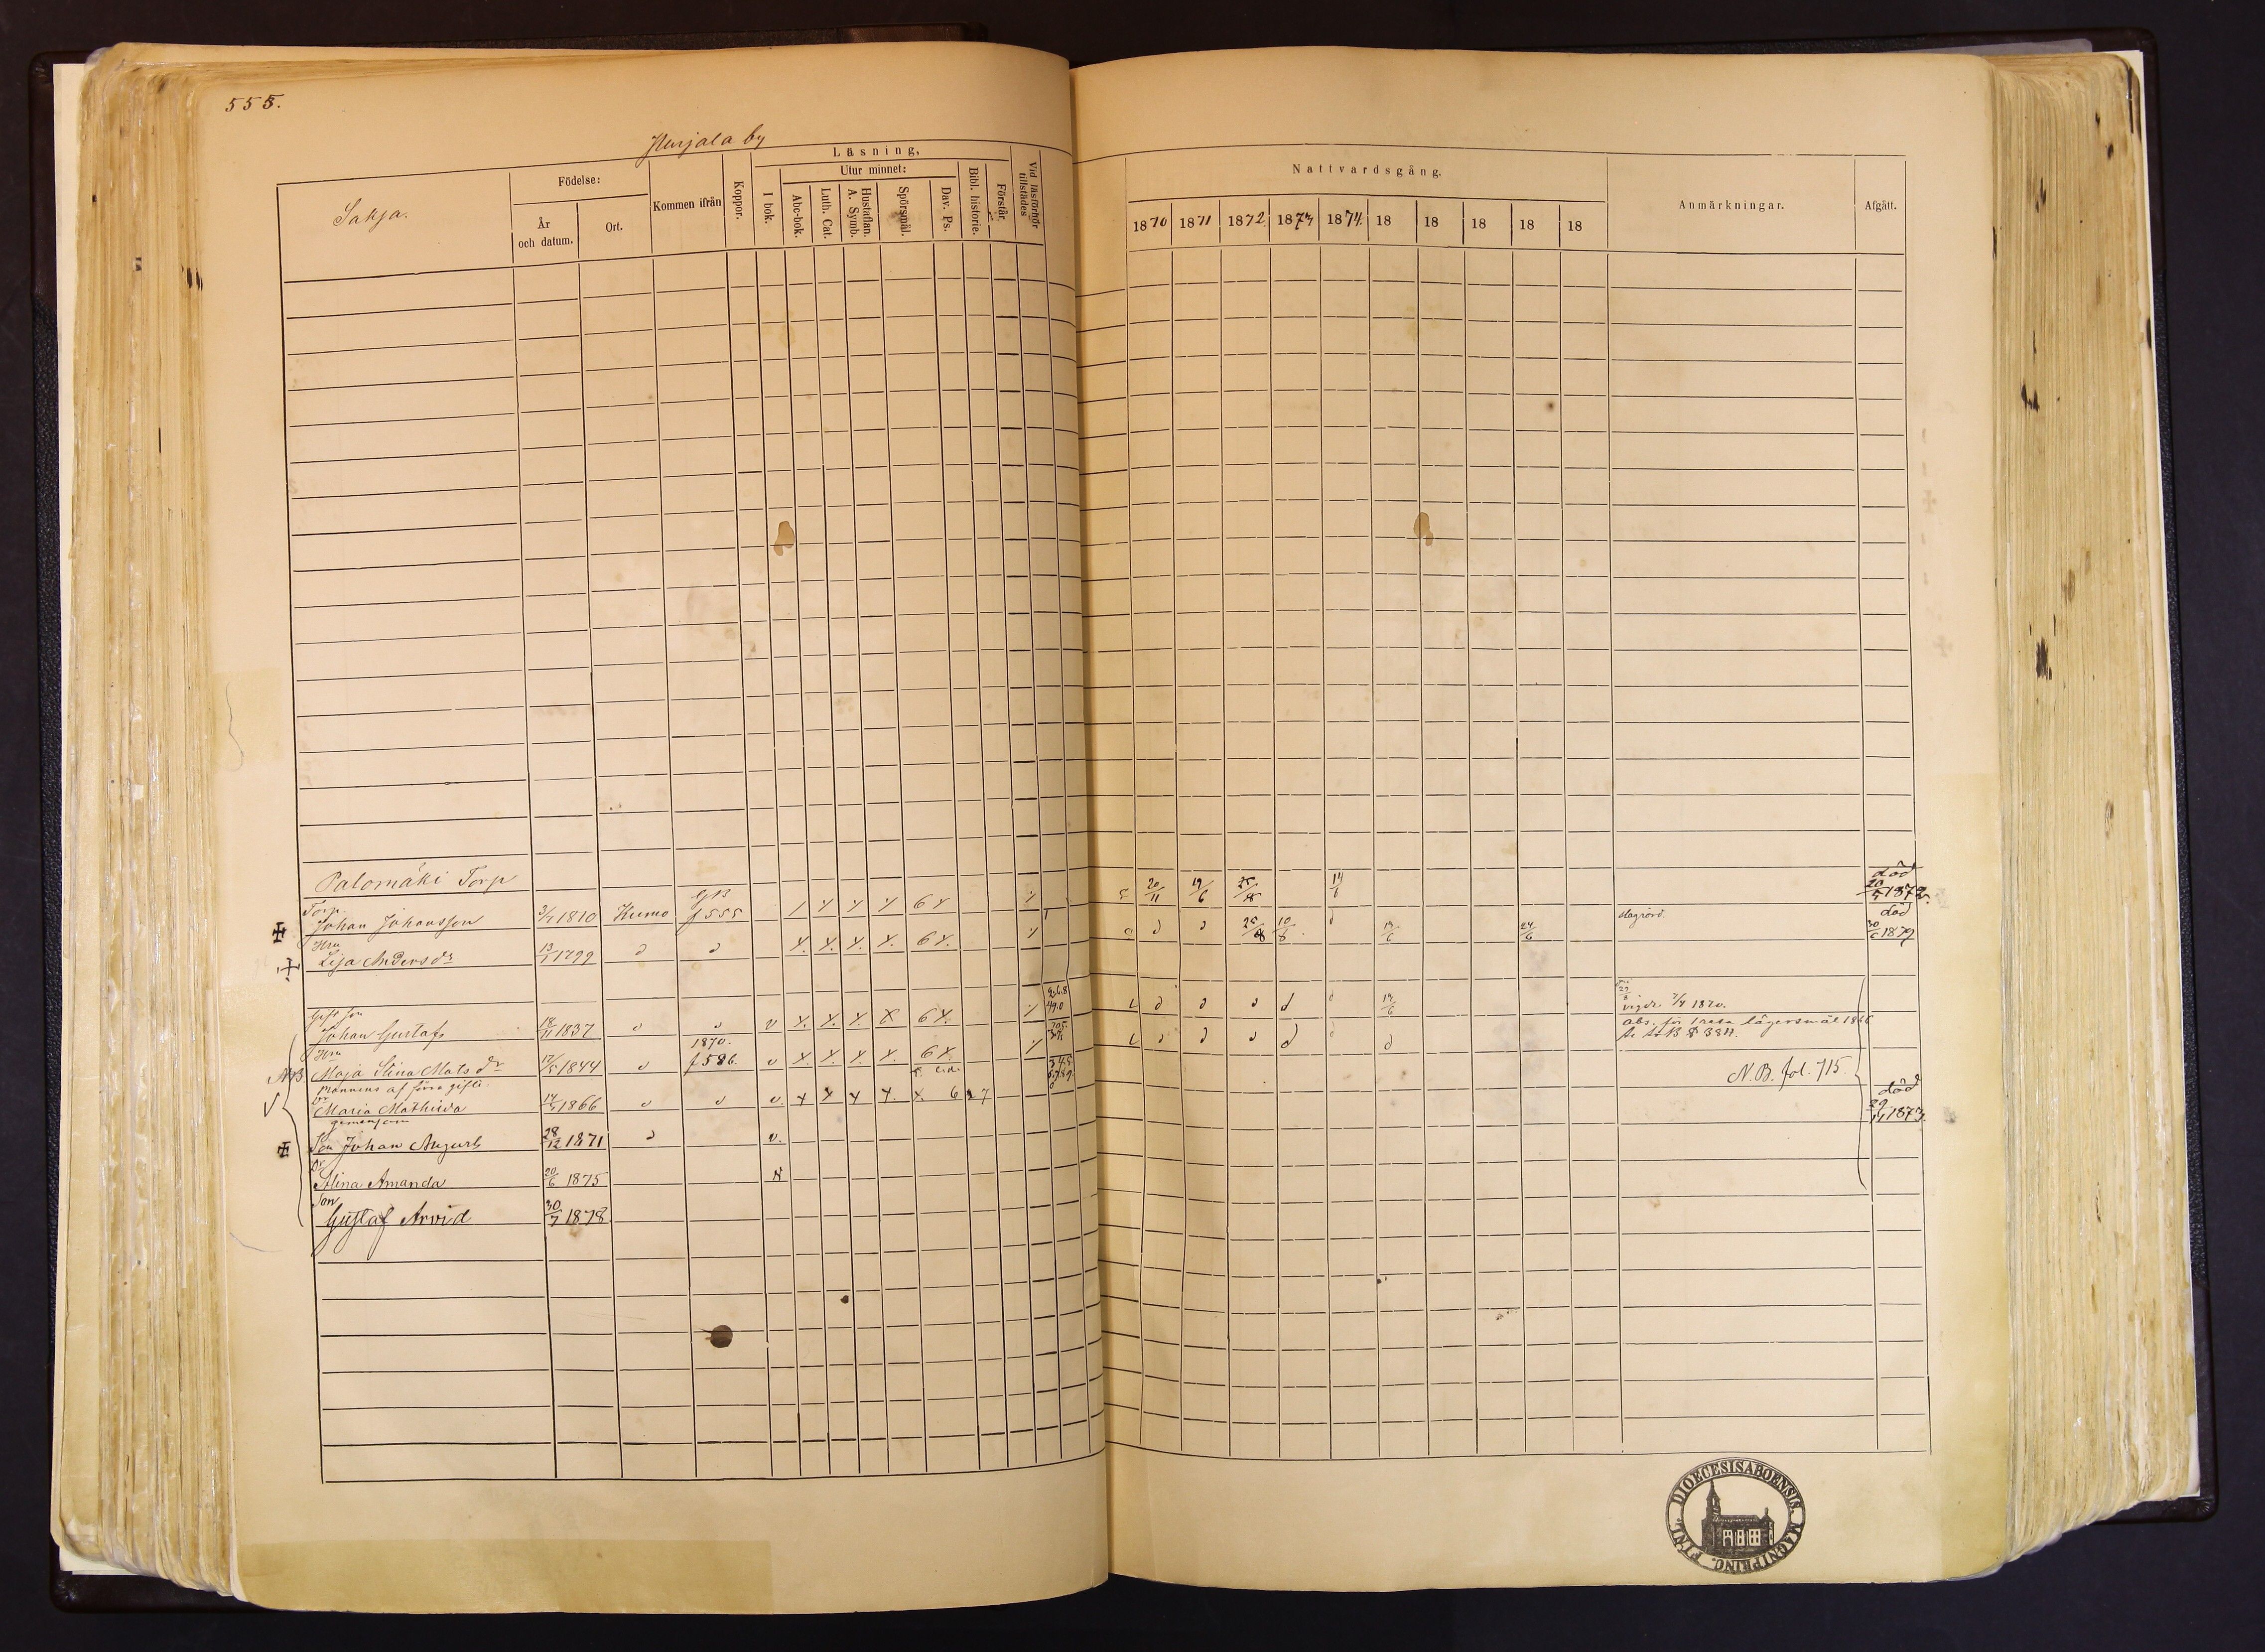 555.
Hurjala by
Sahja.
Födelse:
År
och datum.
Ort.
Kommen ifrån
Koppor.
Läsning,
I bok.
Utur minnet:
Abc-bok.
Luth. Cat.
Hustaflan.
A. Symb.
Spörsmål.
Dav. Ps.
Bibl. historie.
Förstår.
Vid läsförhör
tillstädes
Nattvardsgång.
1870 1871 1872. 1873 1874. 18 18 18 18 18
Anmärkningar.
Afgått.
Palomäki Torp
Torp.
Johan Johansson 3/7 1810 Kumo f 555 6 död 1872.
Hru
Lisa Andersdr 13/1 1799 6 25/8 10/8 19/6 24/6 död 30/6 1879
Gift son
Johan Gustaf 18/11 1837 6 19/6 vigdr. 1870.
Hru 1870.
Maja Stina Matsdr 17/5 1844 f 586. 6 abs. för 1 resa lägersmål 1866
mannens af förra gifte
Dr
Maria Mathilda 17/5 1866 6 7 N.B. fol. 715
gemensam
Son Johan August 28/12 1871 död 1873.
Dr
Stina Amanda 20/6 1875
Son
Gustaf Arvid 30/7 1878
DIOECESIS ABOENSIS. MAGNI PRINC. FINL.